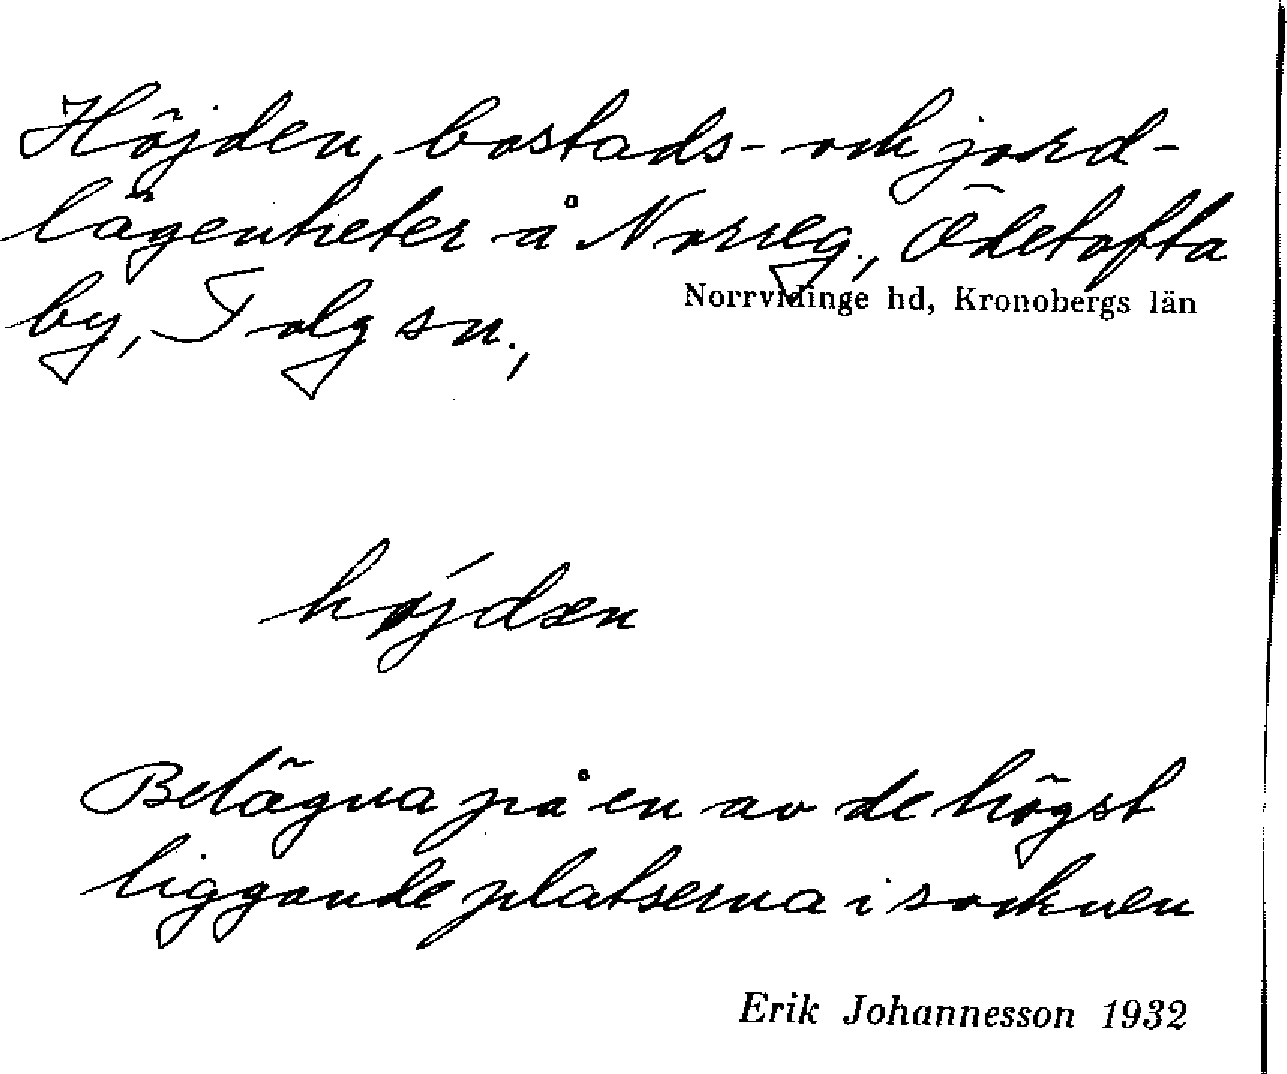 Höjden, bostads- och jord-
lägenheter å Norreg., Ödetofta
by, Tolg sn.,
Norrvidinge hd, Kronobergs län
højdæn
Belägna på en av de högst
liggande platserna i socknen
Erik Johannesson 1932